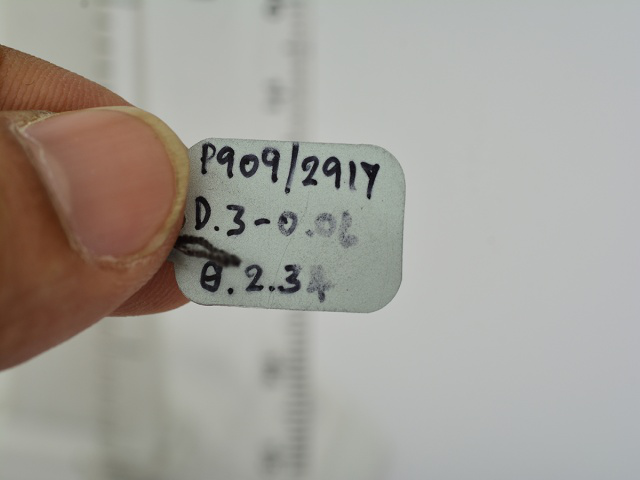 P909/2914
D.3-0.06
θ.2.34